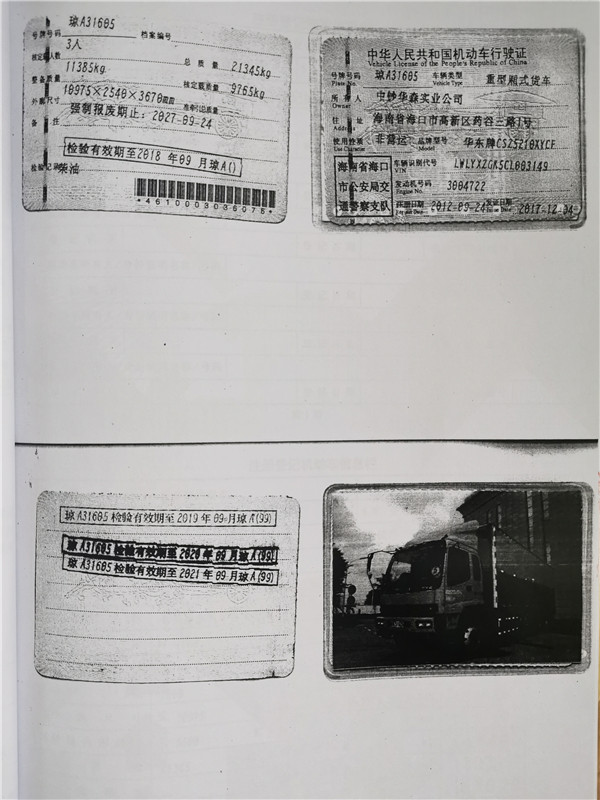 琼A31605
号牌号码
档案编号
3人
核定载人数
总质量
21345kg
11385kg
整备质量
核定载质量
9765kg
10975×2540×3670mm
外廓尺寸
准牵引总质量
强制报废期止:2027-09-24
备注
检验有效期至2018年09月琼A()
检验记录
柴油
*4610003036075*
中华人民共和国机动车行驶证
Vehicle License of the People's Republic of China
号牌号码 琼A31605 车辆类型 重型厢式货车
Plate No. Vehicle Type
所有人 中钞华森实业公司
Owner
住址 海南省海口市高新区药谷三路1号
Address
使用性质 非营运 品牌型号 华东牌CSZ5210XYCF
Use Character Model
海南省海口 车辆识别代号 LWLYXZGK5CL003149
VIN
市公安局交 发动机号码 3004722
Engine No.
通警察支队 注册日期 2012-09-24 发证日期 2017-12-04
Register Date Issue Date
琼A31605检验有效期至2019年09月琼A(99)
琼A31605检验有效期至2020年09月琼A(99)
琼A31605检验有效期至2021年09月琼A(99)